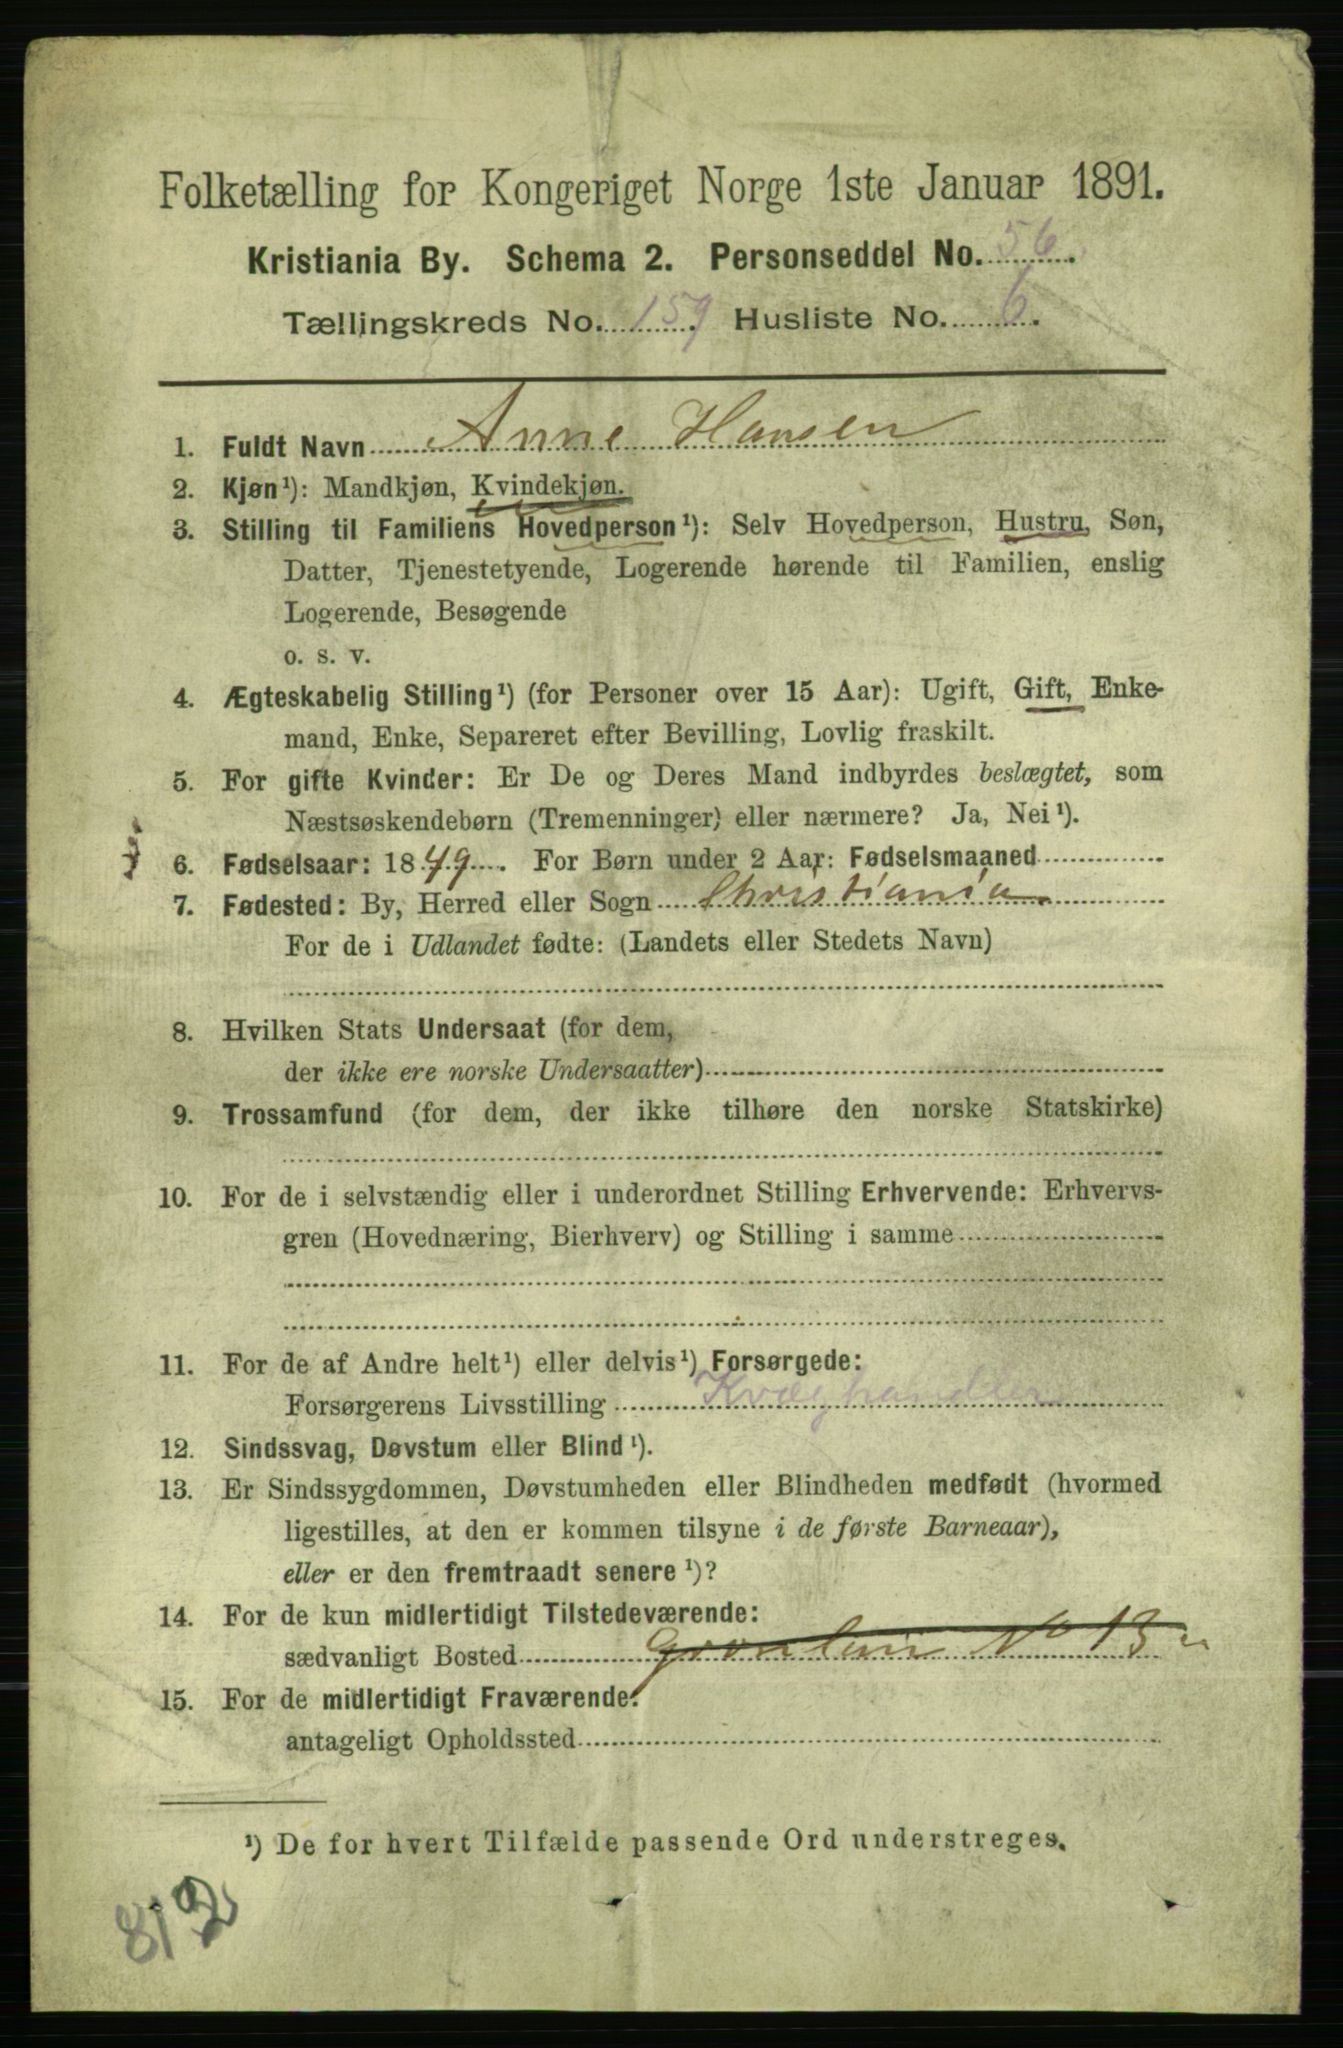 Folketælling for Kongeriget Norge 1ste Januar 1891.
Kristiania By. Schema 2. Personseddel No. 56.
Tællingskreds No. 159. Husliste No. 6.
1. Fuldt Navn Anne Hansen
2. Kjøn¹): Mandkjøn, Kvindekjøn.
3. Stilling til Familiens Hovedperson¹): Selv Hovedperson, Hustru, Søn,
Datter, Tjenestetyende, Logerende hørende til Familien, enslig
Logerende, Besøgende
o. s. v.
4. Ægteskabelig Stilling¹) (for Personer over 15 Aar): Ugift, Gift, Enke-
mand, Enke, Separeret efter Bevilling, Lovlig fraskilt.
5. For gifte Kvinder: Er De og Deres Mand indbyrdes beslægtet, som
Næstsøskendebørn (Tremenninger) eller nærmere? Ja, Nei¹).
6. Fødselsaar: 1849. For Børn under 2 Aar: Fødselsmaaned
7. Fødested: By, Herred eller Sogn Christiania
For de i Udlandet fødte: (Landets eller Stedets Navn)
8. Hvilken Stats Undersaat (for dem,
der ikke ere norske Undersaatter)
9. Trossamfund (for dem, der ikke tilhøre den norske Statskirke)
10. For de i selvstændig eller i underordnet Stilling Erhvervende: Erhvervs-
gren (Hovednæring, Bierhverv) og Stilling i samme
11. For de af Andre helt¹) eller delvis¹) Forsørgede:
Forsørgerens Livsstilling Kvæghandler
12. Sindssvag, Døvstum eller Blind¹).
13. Er Sindssygdommen, Døvstumheden eller Blindheden medfødt (hvormed
ligestilles, at den er kommen tilsyne i de første Barneaar),
eller er den fremtraadt senere¹)?
14. For de kun midlertidigt Tilstedeværende:
sædvanligt Bosted No 13
15. For de midlertidigt Fraværende:
antageligt Opholdssted
¹) De for hvert Tilfælde passende Ord understreges.